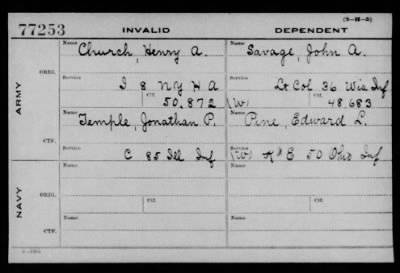 (3-H-5)
77253 INVALID DEPENDENT
Name Church, Henry A. Name Savage, John A.
ORIG.
Service Service
I 8 N Y H A Lt Col 36 Wis Inf
Ctf. 50,872 (W) Ctf. 48,683
ARMY
Name Temple, Jonathan P. Name Pine, Edward L.
Service Service
CTF. C 85 Ill Inf (W) K & E 50 Ohio Inf
Name Name
ORIG. Ctf. Ctf.
NAVY
Name Name
CTF.